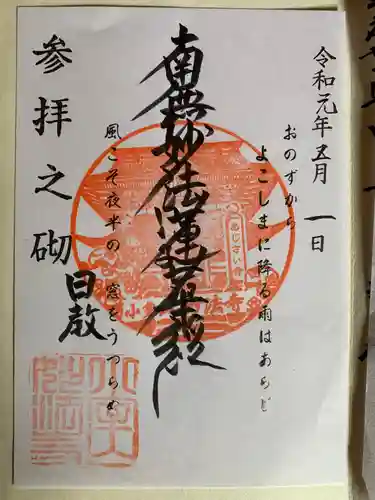 令和元年五月一日
おのずから
よこしまに降る雨はあらじ
南無妙法蓮華経
風こそ夜半の窓をうつらめ
参拝之砌
日啟
あじさい寺